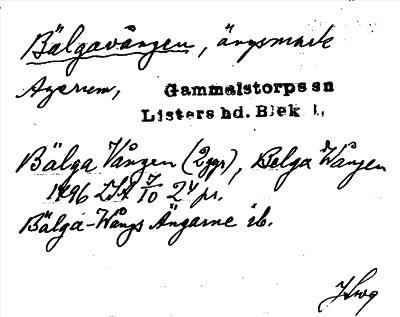 Bälgavången, ängsmark
Agerum,
Gammalstorps sn
Listers hd. Blek. l.
Bälga Vången (2ggr), Belga Wången
1796 LSA 7/10 24 pr.
Bälga-Wångs Ängarne ib.